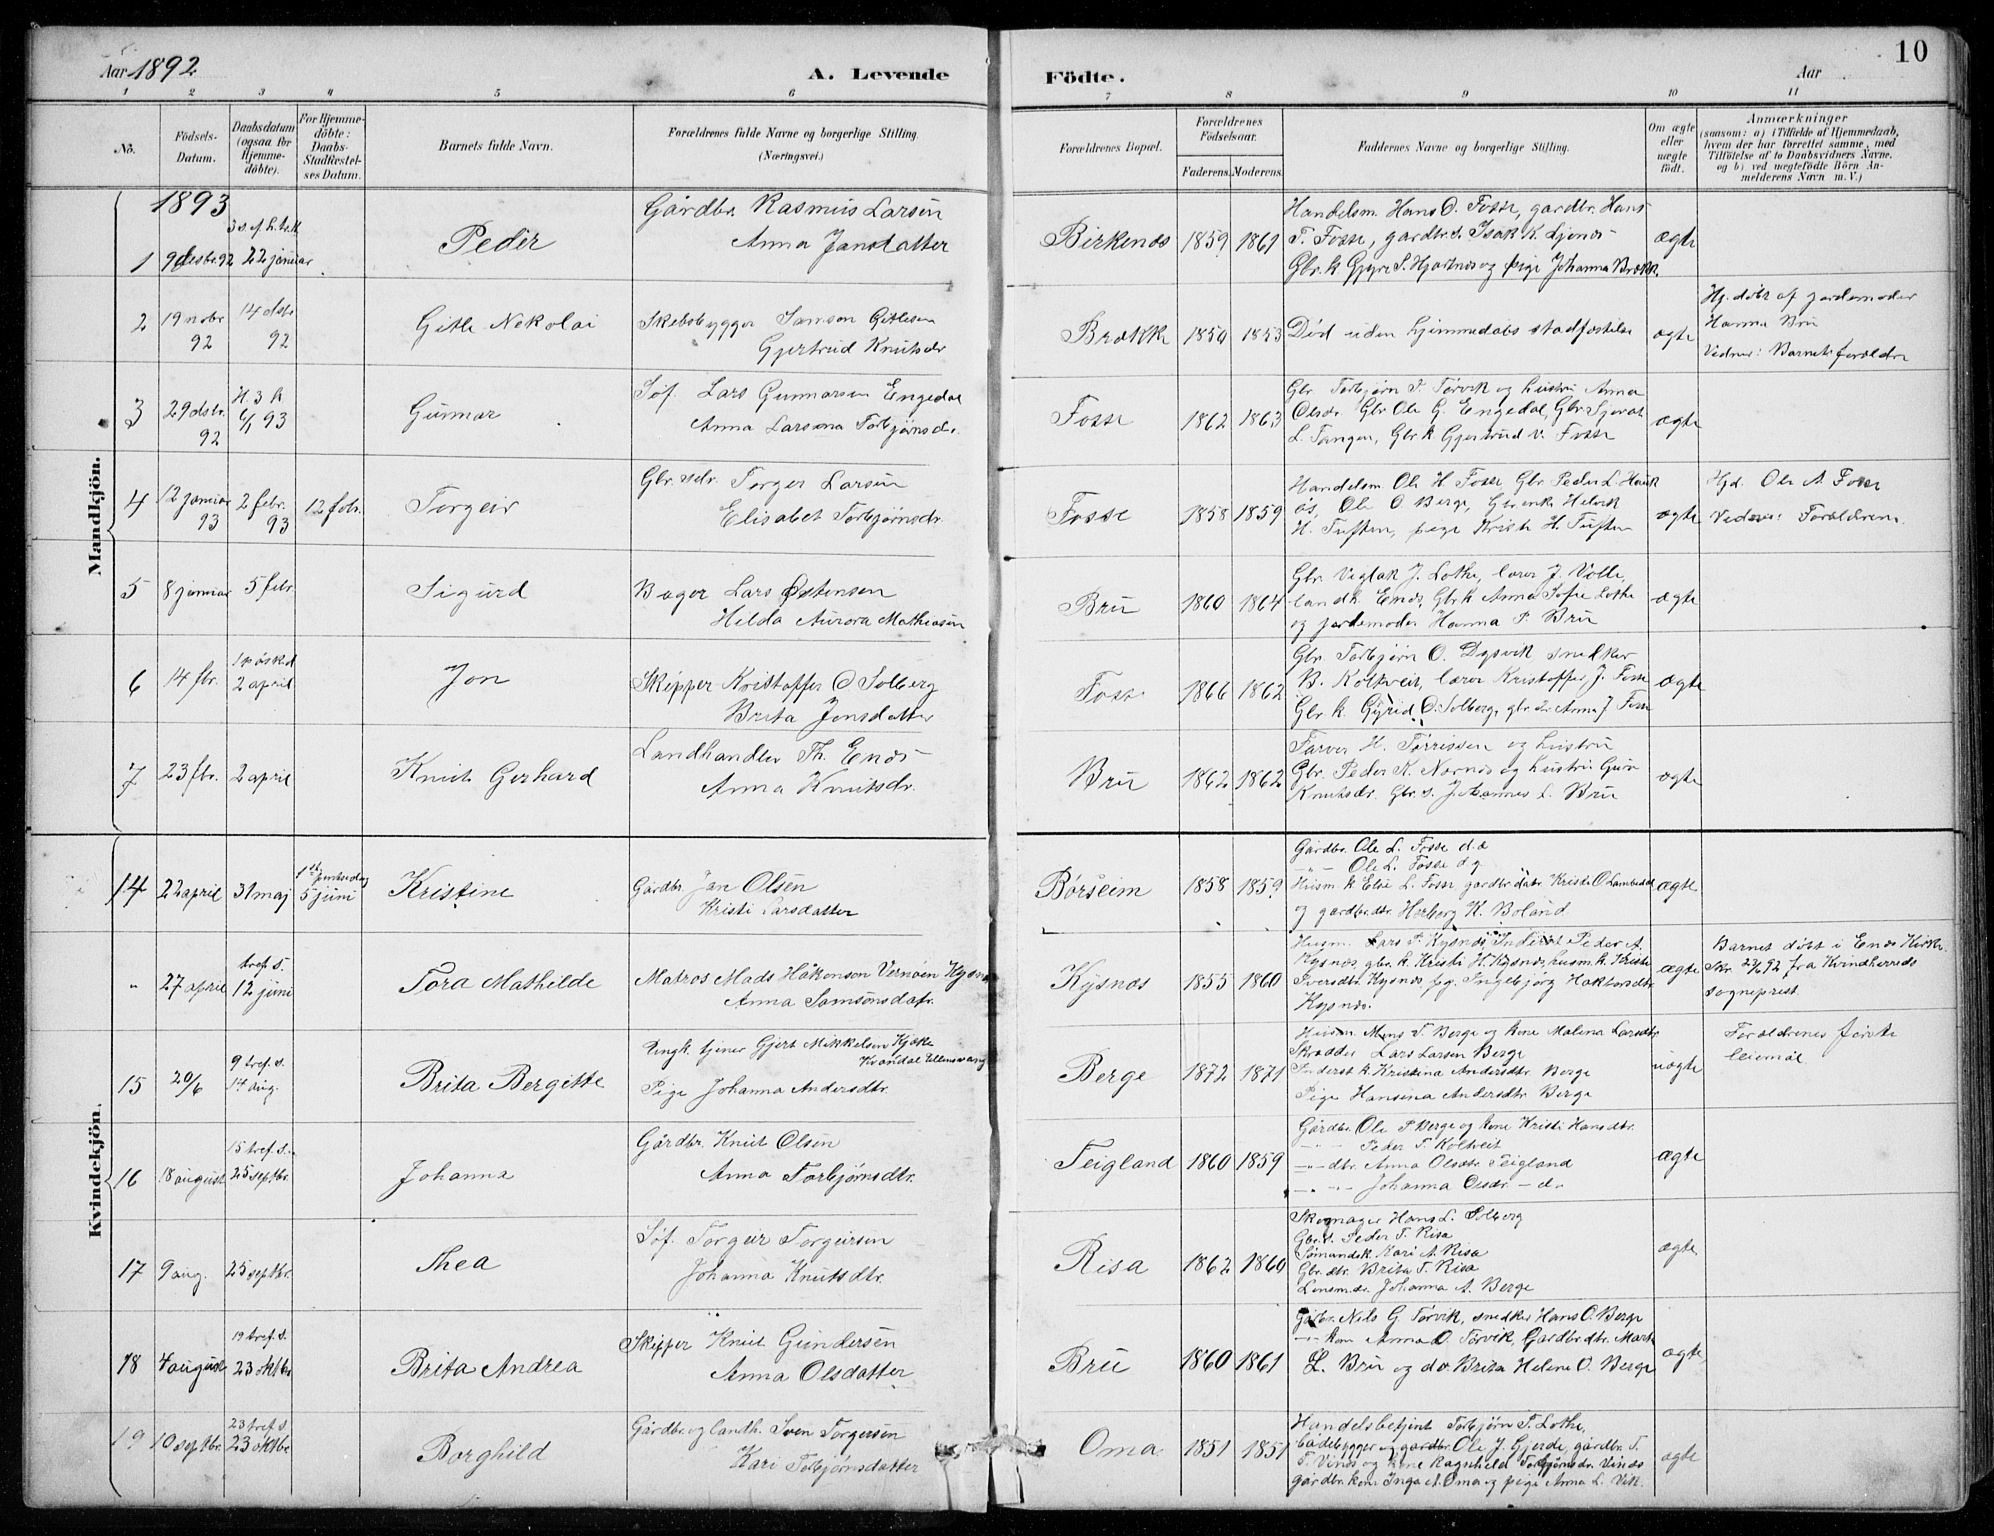 10
Aar 1892
A. Levende
Födte.
Aar
1 2 3 4 5 6 7 8 9 10 11
No.
Födsels-Datum.
Daabsdatum (ogsaa for Hjemmedöbte).
For Hjemmedöbte: Daabs-Stadfæstelses Datum.
Barnets fulde Navn.
Forældrenes fulde Navne og borgerlige Stilling. (Næringsvei.)
Forældrenes Bopæl.
Forældrenes Födselsaar.
Faderens. Moderens.
Faddernes Navne og borgerlige Stilling.
Om ægte eller uægte födt.
Anmærkninger
(saasom: a) i Tilfælde af Hjemmedaab, hvem der har forrettet samme, med Tilföielse af to Daabsvidners Navne, og b) ved uægtefödte Börn Anmelderens Navn m. V.)
Mandkjön.
1893
1 9 desbr. 92 22 januar Peder
Gårdbr. Rasmus Larsen
Anna Jansdatter
Birkenes 1859 1861
Handelsm. Hans O. Fosse, gardbr. Hans
T. Fosse, gardbr.s. Isak K. Ljones
Gbr.k Gyri S. Hjortnes og pige Johanna Brækk.
ægte
2 19 nobr 92 14 dsbr 92 Gitle Nekolai
Skibsbygger Samson Gitlesen
Gjertrud Knutsdr
Brækk 1850 1853
Død uden hjemmedåbs stadfæstelse
ægte
Hj. døbt af jordemoder
Hanna Bru
Vidner: Barnets forældre
3 29 dsbr. 92 H. 3 K 6/1 93 Gunnar
Søf. Lars Gunnarsen Engedal
Anna Larsina Torbjørnsdr.
Fosse 1862 1863
Gbr. Torbjørn T. Tørvik og hustru Anna
Olsdr. Gbr Ole G. Engedal, Gbr. Sjovat
L. Tangen, Gbr k Gjertrud V. Fosse
ægte
4 12 januar 93 2 febr. 93 12 febr. Torgeir
Gbr. sdr. Torger Larsen
Elisabet Torbjørnsdr.
Fosse 1858 1859
Handelsm Ole H Fosse Gbr Peder L. Heuk
øs, Ole O. Berge, Gbr.enk Helok
H. Tuften, pige Kristi H. Tuften
ægte
Hjd. Ole A. Fosse
Vidner: Forældrene.
5 8 januar 5 febr. Sigurd
Bager Lars Østensen
Hilda Aurora Mathiasen
Bru 1860 1864
Gbr. Viglak J. Lothe, lærer J. Volle,
landh. Enes, Gbr k Anna Sofie Lothe
og jordemoder Hanna P. Bru
ægte
6 14 fbr. 2 april Jon
Skipper Kristoffer O Solberg
Brita Jonsdatter
Foss 1866 1862
Gbr. Torbjørn O. Dysvik snedker
B. Kolltveit, lærer Kristoffer J. Fosse
Gbr k. Gyrid O. Solberg, gbr dr Anna J Foss
ægte
7 23 fbr. 2 april Knut Gerhard
Landhandler Th. Enes
Anna Knutsdr.
Bru 1862 1862
Farver H. Tørrissen og hustru
Gbr. Peder K. Nornes og hustru Guru
Knutsdr. Gbr. s. Johannes L. Bru
ægte
Kvindekjön.
14 22 april 31 maj 1ste pintsedag 5 juni Kristine
Gårdbr. Jan Olsen
Kristi Larsdatter
Børseim 1858 1859
Gårdbr. Ole L. Fosse d. æ
-"- Ole L. Fosse d. y
Husm. k Else L. Foss gardbr datr Kristi O Lambedal
og gardbr.dtr Herborg K. Boland.
ægte
" 27 april tref. s. 12 juni Tora Mathilde
Matros Mads Håkonson Vernøen Kysnes
Anna Samsonsdatr.
Kysnes 1855 1860
Husm. Lars P. Kysnes, Inderst Peder A.
Kysnes, gbr. k. Kristi H. Kysnes, husm. k. Kristi
Iversdtr. Kysnes pg. Ingebjørg Haktorsdtr.
Kysnes.
ægte
Barnet døbt i Enes Kirke.
Skr. 27/6 92 fra Kvindherreds
sogneprest.
15 20/6 9 tref. s. 14 aug. Brita Bergitte
Ungk. tjener Gjert Mikkelsen Kjække
Kvandal Ullensvang
Pige Johanna Andersdtr.
Berge 1872 1871
Husm. Mons T. Berge og kone Malena Larsdtr.
Skrædder Lars Larsen Berge
Inderst k. Kristina Andersdtr. Berge
Pige Hansena Andersdtr Berge
uægte
Forældrenes første
leiermål
16 18 august 15 tref. s. 25 septbr. Johanna
Gårdbr. Knut Olsen
Anna Torbjørnsdtr.
Teigland 1860 1859
Gårdbr Ole P Berge og kone Kristi Hansdtr.
-"- Peder T. Koltveit
-"- dtr. Anna Olsdtr Teigland
-"- Johanna Olsdr. - d.
ægte
17 9 aug. 25 septbr. Thea
Søf. Torgeir Torgeirsen
Johanna Knutsdtr.
Risa 1862 1860
Skomager Hans L. Solberg
Gbr. s. Peder T. Risa
Sømandsk. Kari A. Risa
Gbr. dtr. Brita T. Risa
Lensm.dr. Johanna A. Berge
ægte
18 4 august 19 tref. s. 23 oktbr Brita Andrea
Skipper Knut Gundersen
Anna Olsdatter
Bru 1860 1861
Gårbr. Nils G Tørvik, snedker Hans O. Berge
-"- kone Anna O. Tørvik, Gardbr.dtr. Marta
L. Bru og do Brita Helene O. Berge
ægte
19 10 septbr. 23 tref. s. 23 oktbr Borghild
Gårdbr og landh. Sven Torgersen
Kari Torbjørnsdatter
Oma 1851 1851
Handelsbetjent Torbjørn T. Lothe,
bådebygger og gardbr. Ole J. Gjerde, gårdbr. T.
T. Vines og kone Ragnhild Torbjørnsdr. Vines
gårdbr. kone Inga A. Oma og pige Anna L. Vik.
ægte